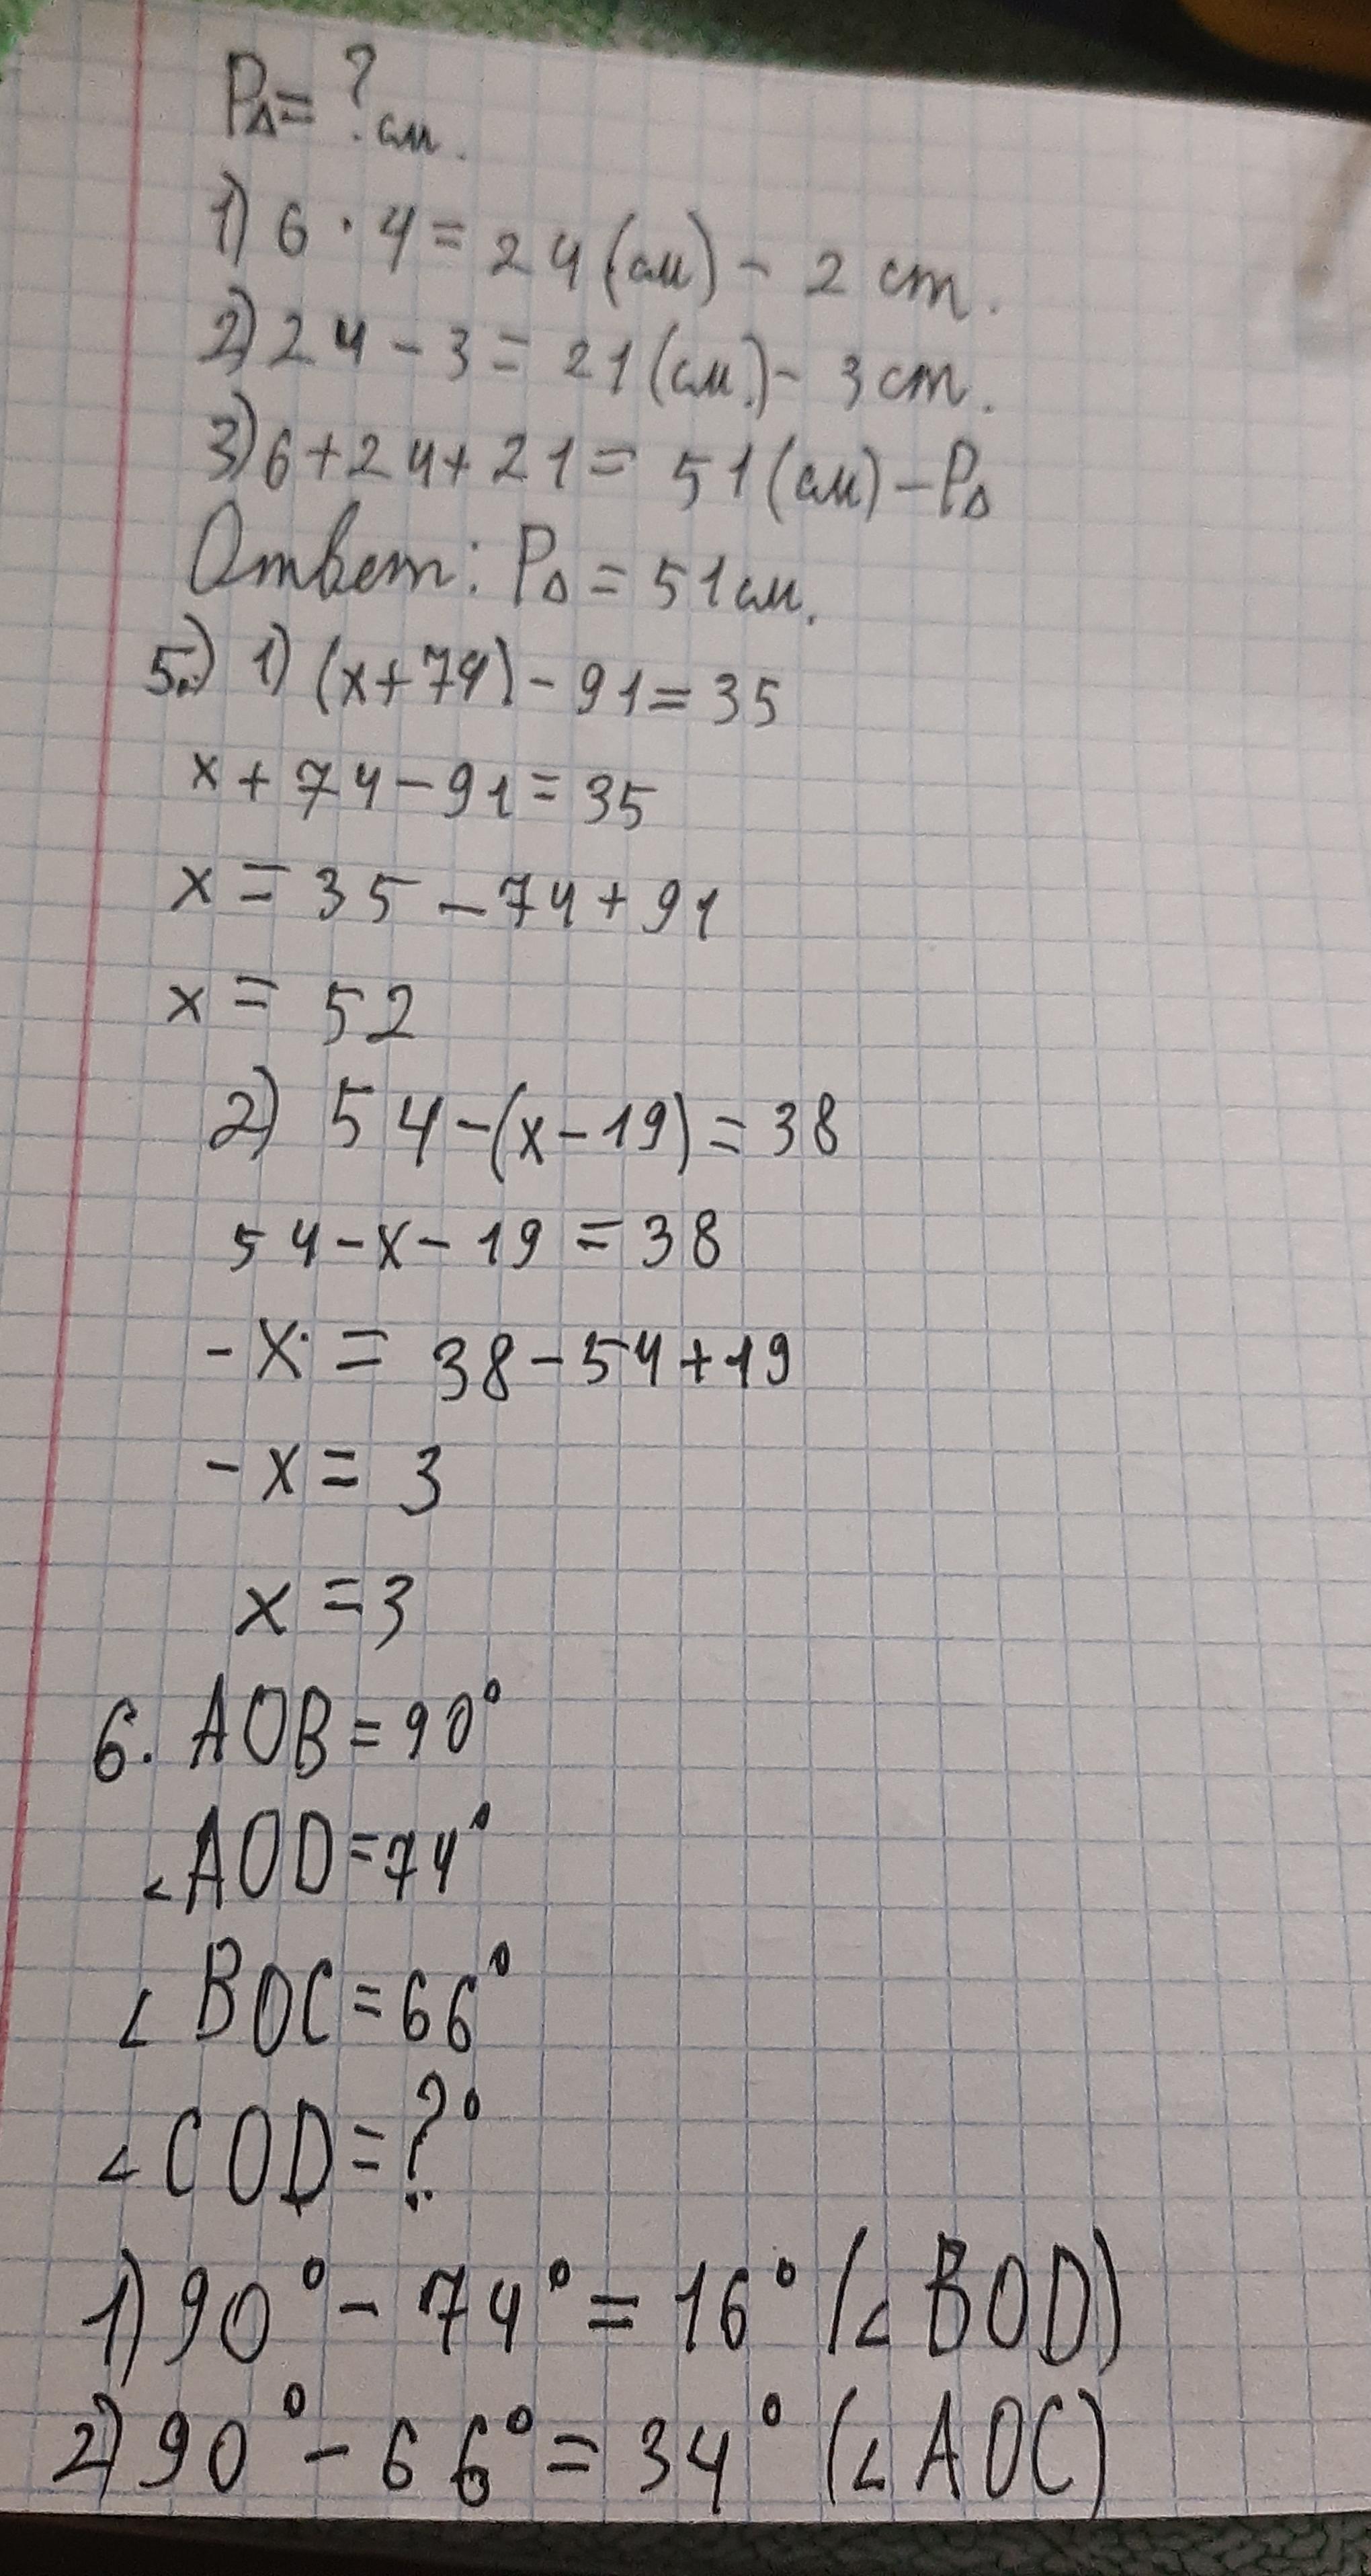 P△ = ? см.
1) 6 · 4 = 24 (см) - 2 ст.
2) 24 - 3 = 21 (см.) - 3 ст.
3) 6 + 24 + 21 = 51 (см) - P△
Ответ: P△ = 51 см.
5.) 1) (x + 74) - 91 = 35
x + 74 - 91 = 35
x = 35 - 74 + 91
x = 52
2) 54 - (x - 19) = 38
54 - x - 19 = 38
- x = 38 - 54 + 19
- x = 3
x = 3
6. AOB = 90°
∠AOD = 74°
∠BOC = 66°
∠COD = ?°
1) 90° - 74° = 16° (∠BOD)
2) 90° - 66° = 34° (∠AOC)